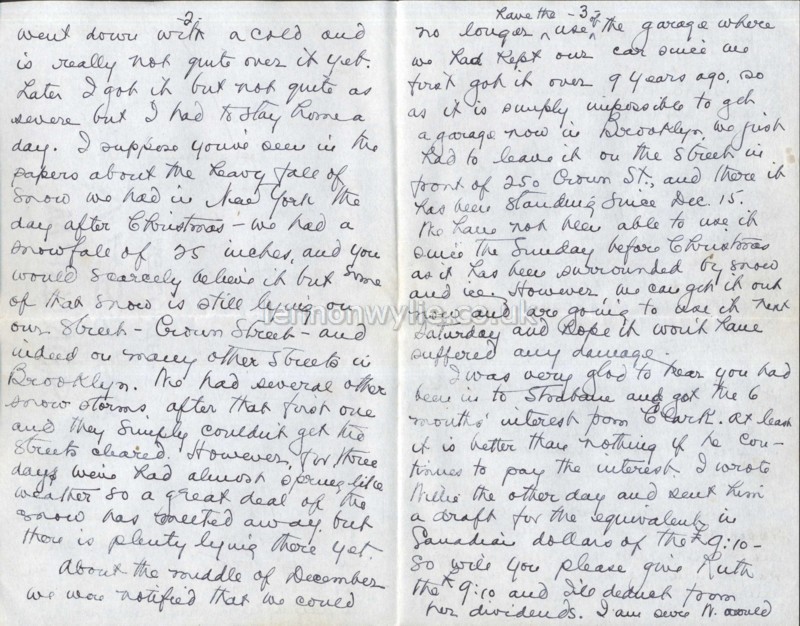 -2-
went down with a cold and
is really not quite over it yet.
Later I got it but not quite as
severe but I had to stay home a
day. I suppose you've seen in the
papers about the heavy fall of
snow we had in New York the
day after Christmas - we had a
snowfall of 25 inches, and you
would scarcely believe it but some
of that snow is still lying on
our street - Crown Street - and
indeed on many other streets in
Brooklyn. We had several other
snow storms after that first one
and they simply couldn't get the
streets cleared. However, for three
days we've had almost spring-like
weather so a great deal of the
snow has melted away but
there is plenty lying there yet.
About the middle of December
we were notified that we could
-3-
no longer have the use of the garage where
we had kept our car since we
first got it over 9 years ago, so
as it is simply impossible to get
a garage now in Brooklyn, we just
had to leave it on the street in
front of 250 Crown St., and there it
has been standing since Dec. 15.
We have not been able to use it
since the Sunday before Christmas
as it has been surrounded by snow
and ice. However, we can get it out
now and are going to use it next
Saturday and hope it won't have
suffered any damage.
I was very glad to hear you had
been in to Strabane and got the 6
months' interest from Clark. At least
it is better than nothing if he con-
tinues to pay the interest. I wrote
Willie the other day and sent him
a draft for the equivalent in
Canadian dollars of the £9:10 -
so will you please give Ruth
the £9:10 and I'll deduct from
her dividends. I am sure W. would
lennonwylie.co.uk